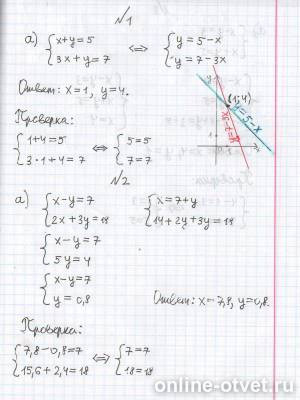 №1
а) { x+y=5 ⇔ { y=5-x
{ 3x+y=7 { y=7-3x
Ответ: x=1, y=4.
y
(1;4)
y=5-x
y=7-3x
1
x
Проверка:
{ 1+4=5 ⇔ { 5=5
{ 3·1+4=7 { 7=7
№2
а) { x-y=7 { x=7+y
{ 2x+3y=18 { 14+2y+3y=18
{ x-y=7
{ 5y=4
{ x-y=7
{ y=0,8 Ответ: x=7,8, y=0,8.
Проверка:
{ 7,8-0,8=7 ⇔ { 7=7
{ 15,6+2,4=18 { 18=18
online-otvet.ru